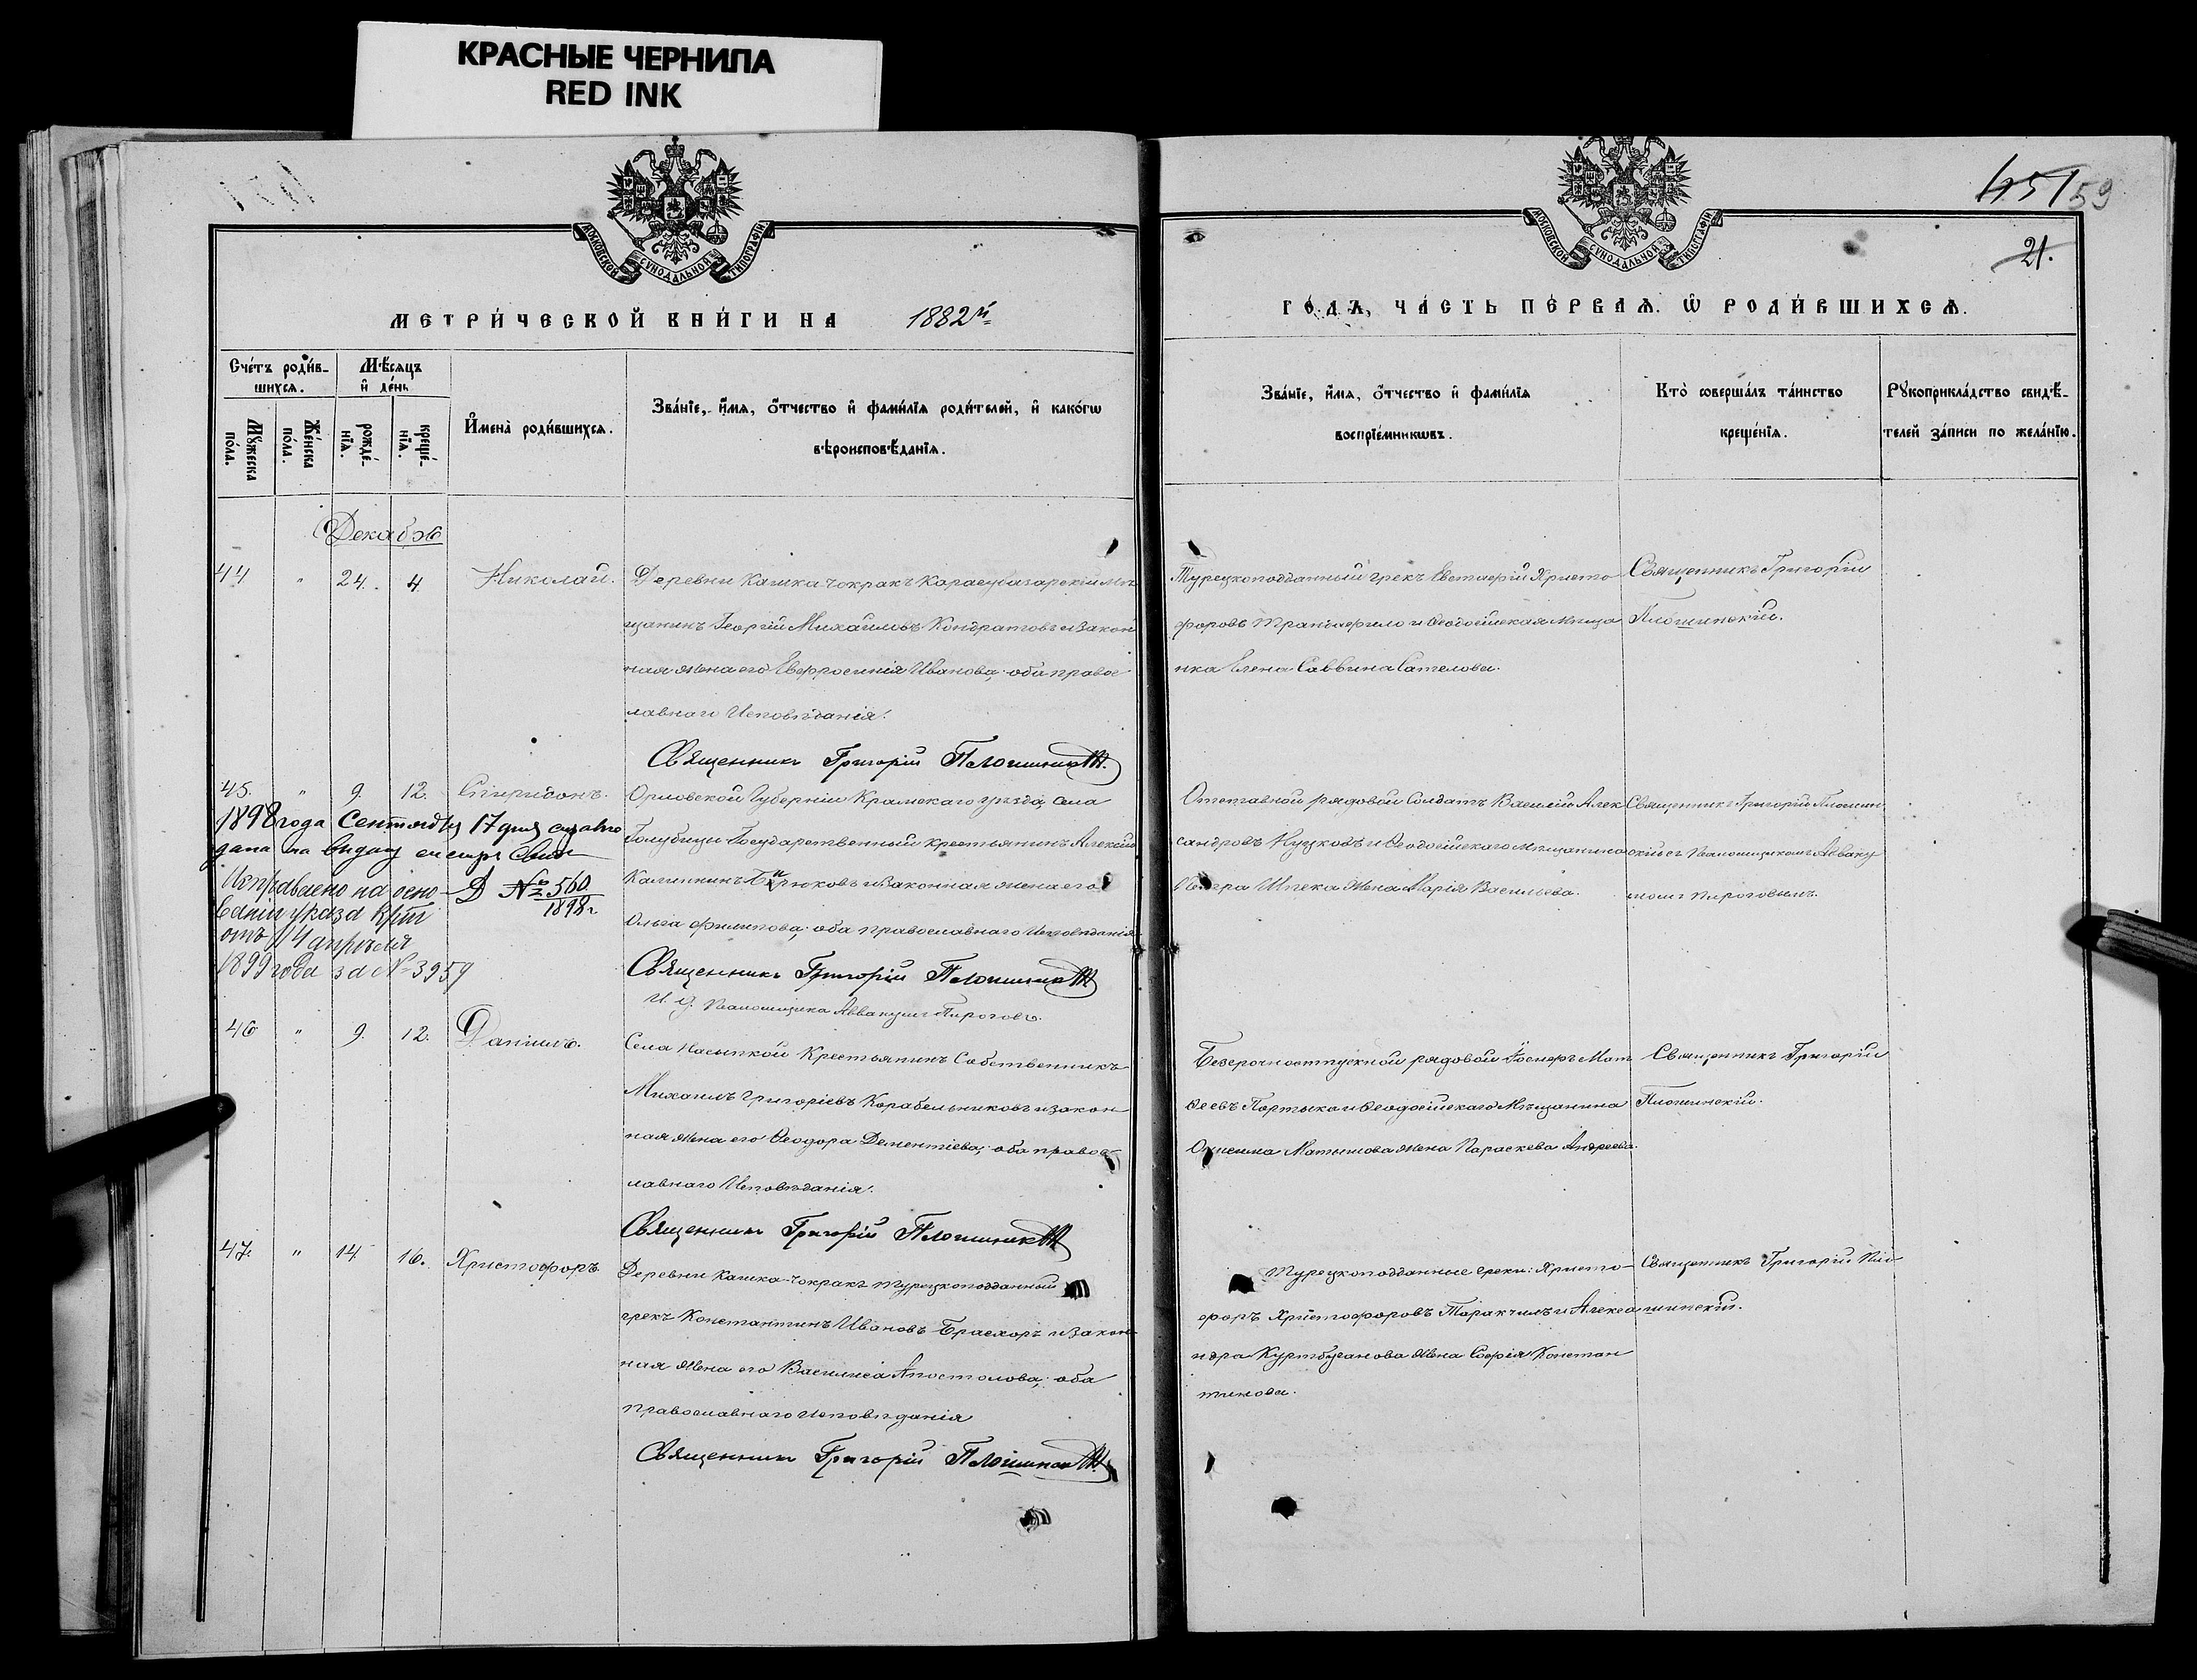 КРАСНЫЕ ЧЕРНИЛА
RED INK
МОСКОВСКОЙ СѴНОДАЛЬНОЙ ТИПОГРАФІИ
МЕТРИ́ЧЕСКОЙ КНИ́ГИ НА 1882й
Сче́тъ роди́в-
шихся.
Мѣ́сяцъ
и҆ де́нь
Мꙋ́жеска
по́ла.
Же́нска
по́ла.
рожде́-
нїѧ.
креще́-
нїѧ.
И҆мена̀ роди́вшихсѧ.
Зва́нїе, и҆́мѧ, ѻ҆́тчество и҆ фами́лїѧ роди́телей, и҆ како́гѡ
вѣроисповѣ́данїѧ.
Декабрь
44 " 24. 4. Николай. Деревни Кашка-Чокракъ Карасубазарскій Мѣ
щанинъ Георгій Михайловъ Кондратовъ и закон
ная жена его Евфросинія Иванова; оба правос
лавнаго Исповѣданія.
Священникъ Григорій Плошинскій.
45. " 9. 12. Спиридонъ. Орловской Губерніи Кромскаго уѣзда, села
Голубицы Государственный крестьянинъ Алексій
Калинникъ Бирюковъ и законная жена его
Ольга Филипова; оба православнаго Исповѣданія
Священникъ Григорій Плошинскій
И. д. Псаломщика Аввакумъ Пироговъ.
1898 года Сентября 17 дня
дана на выдачу
№ 560
1898 г.
Исправлено на осно-
ваніи указа
отъ 14 апрѣля
1899 года за № 3959
46 " 9. 12. Даніилъ. Села Насыпкой Крестьянинъ Собственникъ
Михаилъ Григоріевъ Корабельниковъ и закон
ная жена его Ѳеодора Дементіева; оба правос-
лавнаго Исповѣданія.
Священникъ Григорій Плошинскій
47. " 14 16. Христофоръ. Деревни Кашка-Чокракъ турецкоподданный
грекъ Константинъ Ивановъ Брасхоръ и закон-
ная жена его Василиса Апостолова; оба
православнаго Исповѣданія
Священникъ Григорій Плошинскій.
451 59
21.
МОСКОВСКОЙ СѴНОДАЛЬНОЙ ТИПОГРАФІИ
ГО́ДЪ, ЧА́СТЬ ПЕ́РВАѦ. Ѡ҆ РОДИ́ВШИХСѦ.
Зва́нїе, и҆́мѧ, ѻ҆́тчество и҆ фами́лїѧ
воспрїе́мникѡвъ.
Кто̀ соверша́лъ та́инство
креще́нїѧ.
Рꙋкоприкла́дство свидѣ́-
телей за́писи по жела́нїю.
Турецкоподданный грекъ Евстафій Христо
форовъ Трандафило и Ѳеодосійская Мѣща
нка Елена Саввина Сателова.
Священникъ Григорій
Плошинскій.
Отставной рядовой Солдатъ Василій Алек
сандровъ Куцковъ и Ѳеодосійскаго Мѣщанина
жена Марія Васильева.
Священникъ Григорій Плошин
скій съ Псаломщикомъ Авваку
момъ Пироговымъ.
Безсрочноотпускной рядовой Іосифъ Мат
веевъ Портыка и Ѳеодосійскаго Мѣщанина
Онисима Матышова жена Параскева Андреева.
Священникъ Григорій
Плошинскій.
Турецкоподданные греки: Христо-
форъ Христофоровъ Таракчилъ и Алекса
ндра Куртбуганова жена Софія Констан
тинова.
Священникъ Григорій Пло
шинскій.